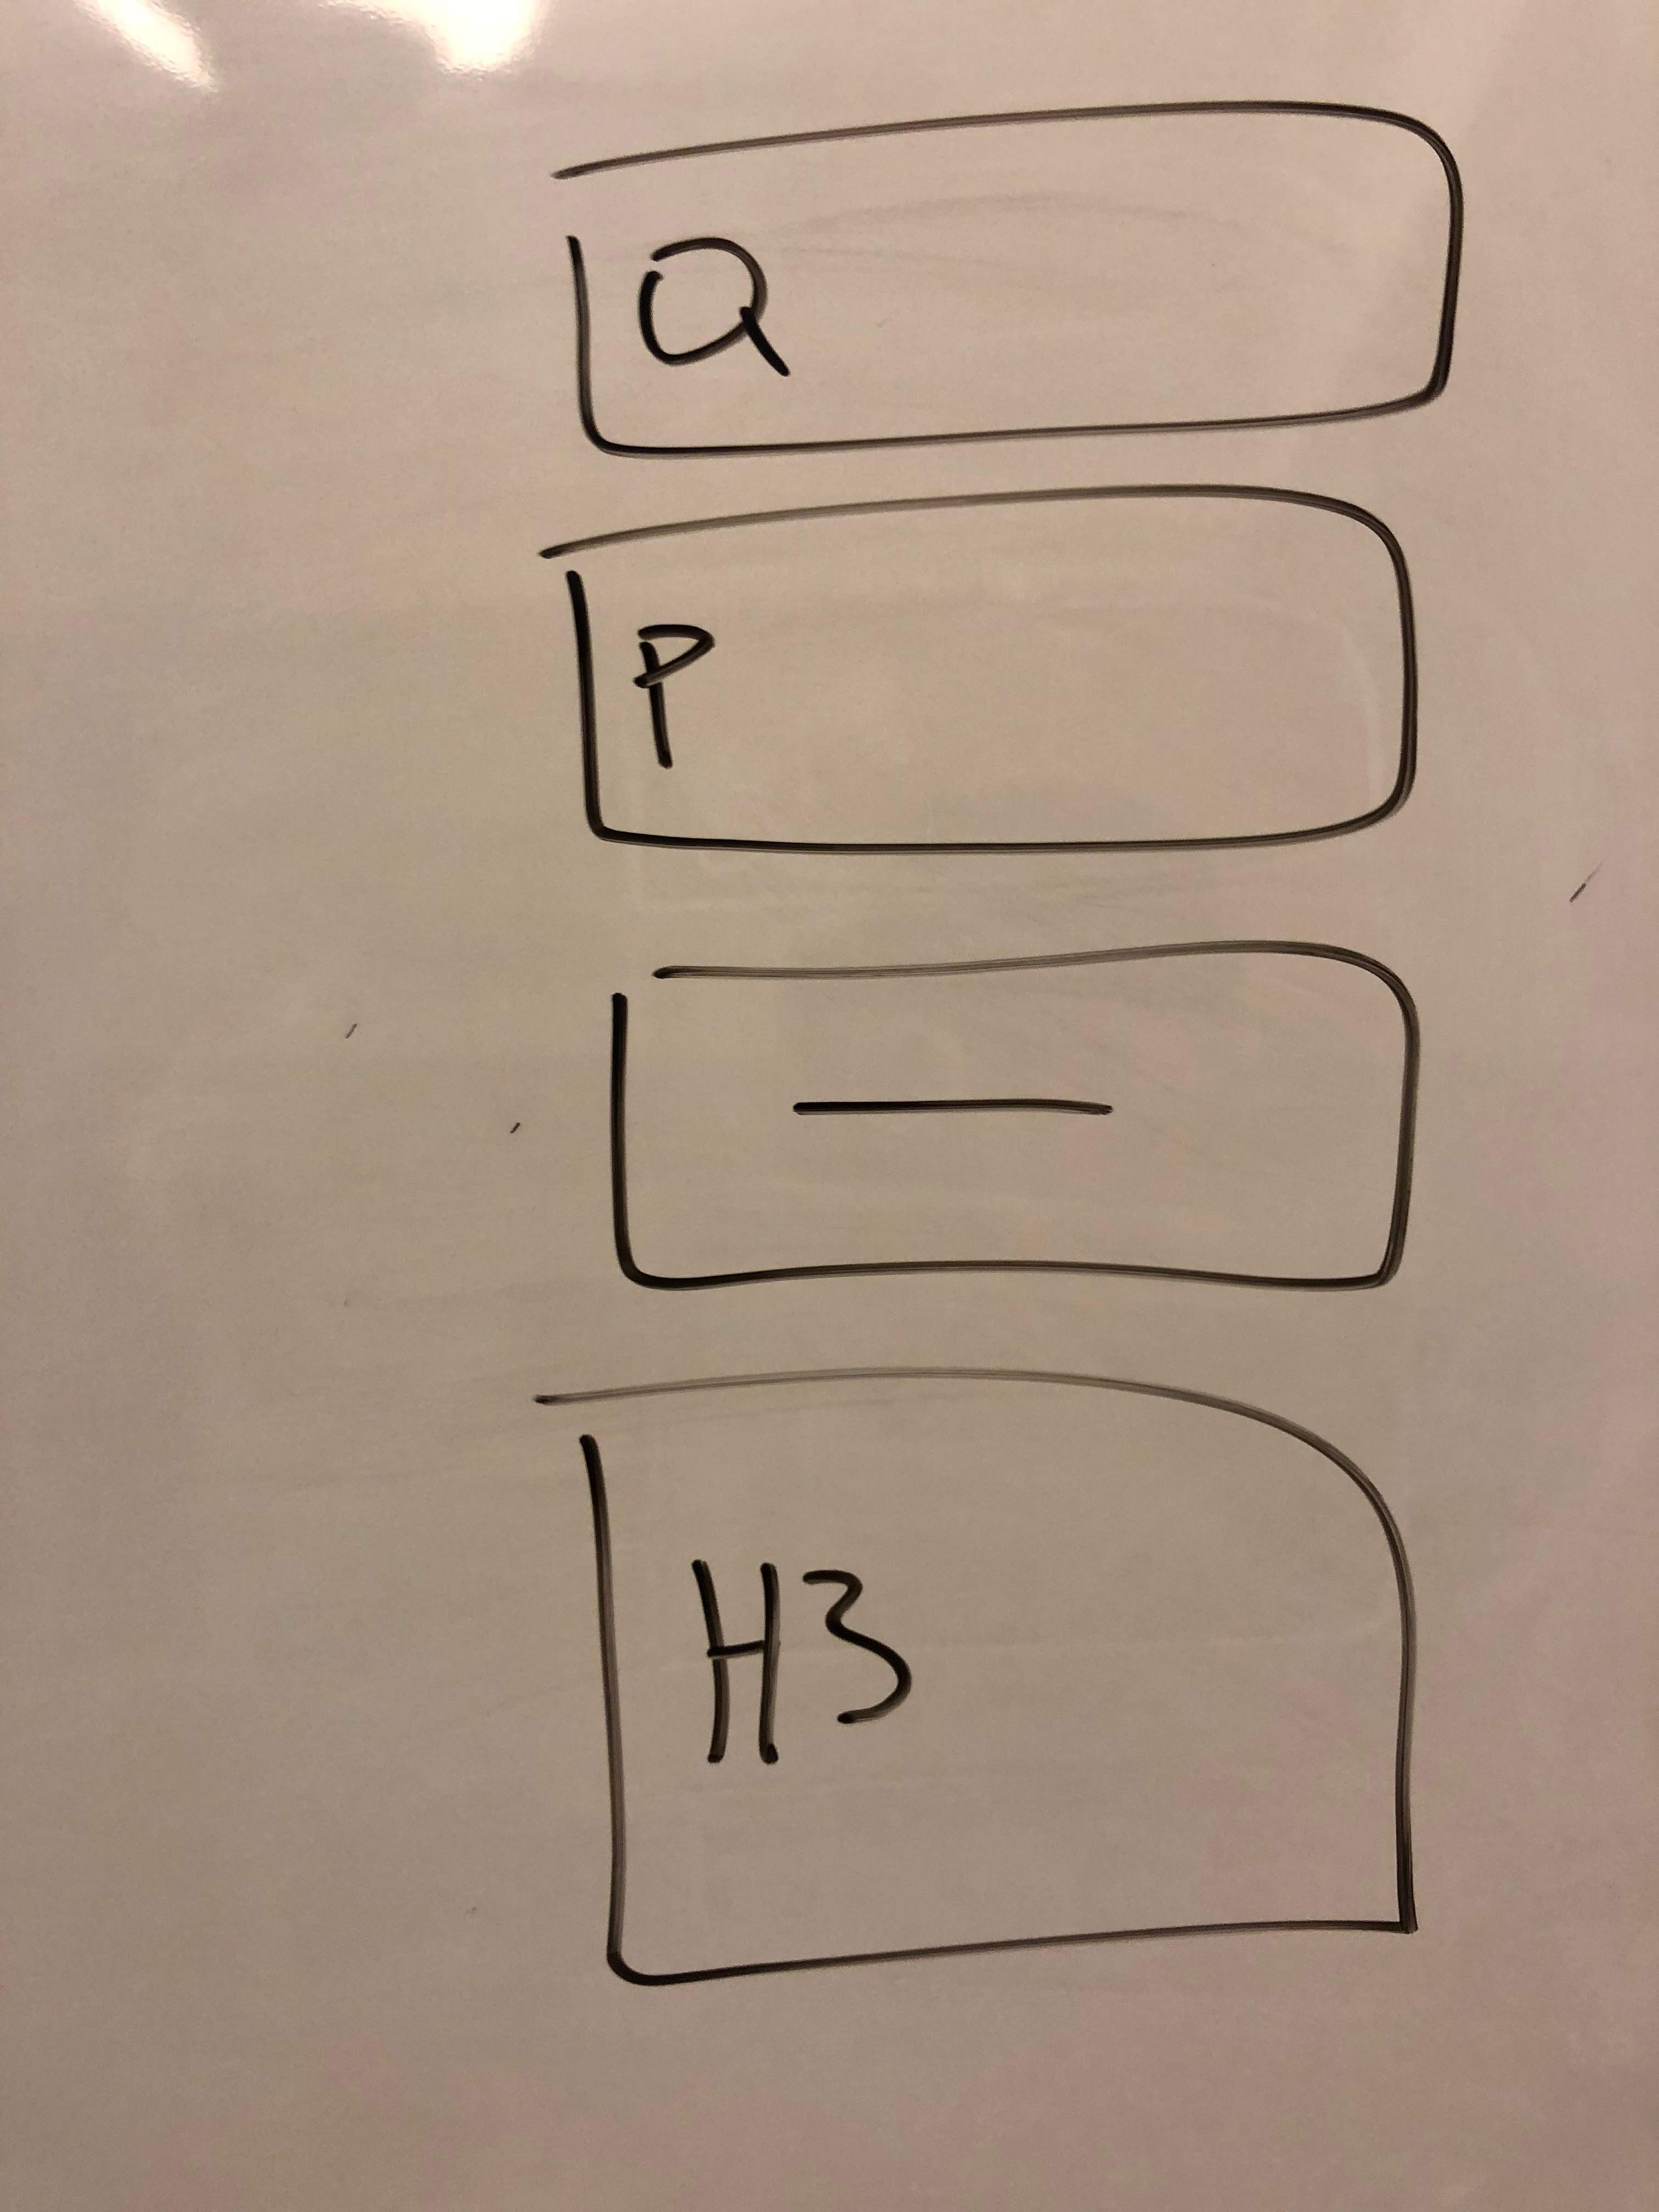 Q
P
—
H3